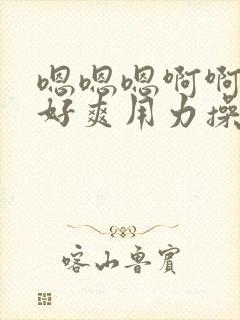 嗯嗯嗯啊啊
好爽用力操
喀山鲁宾